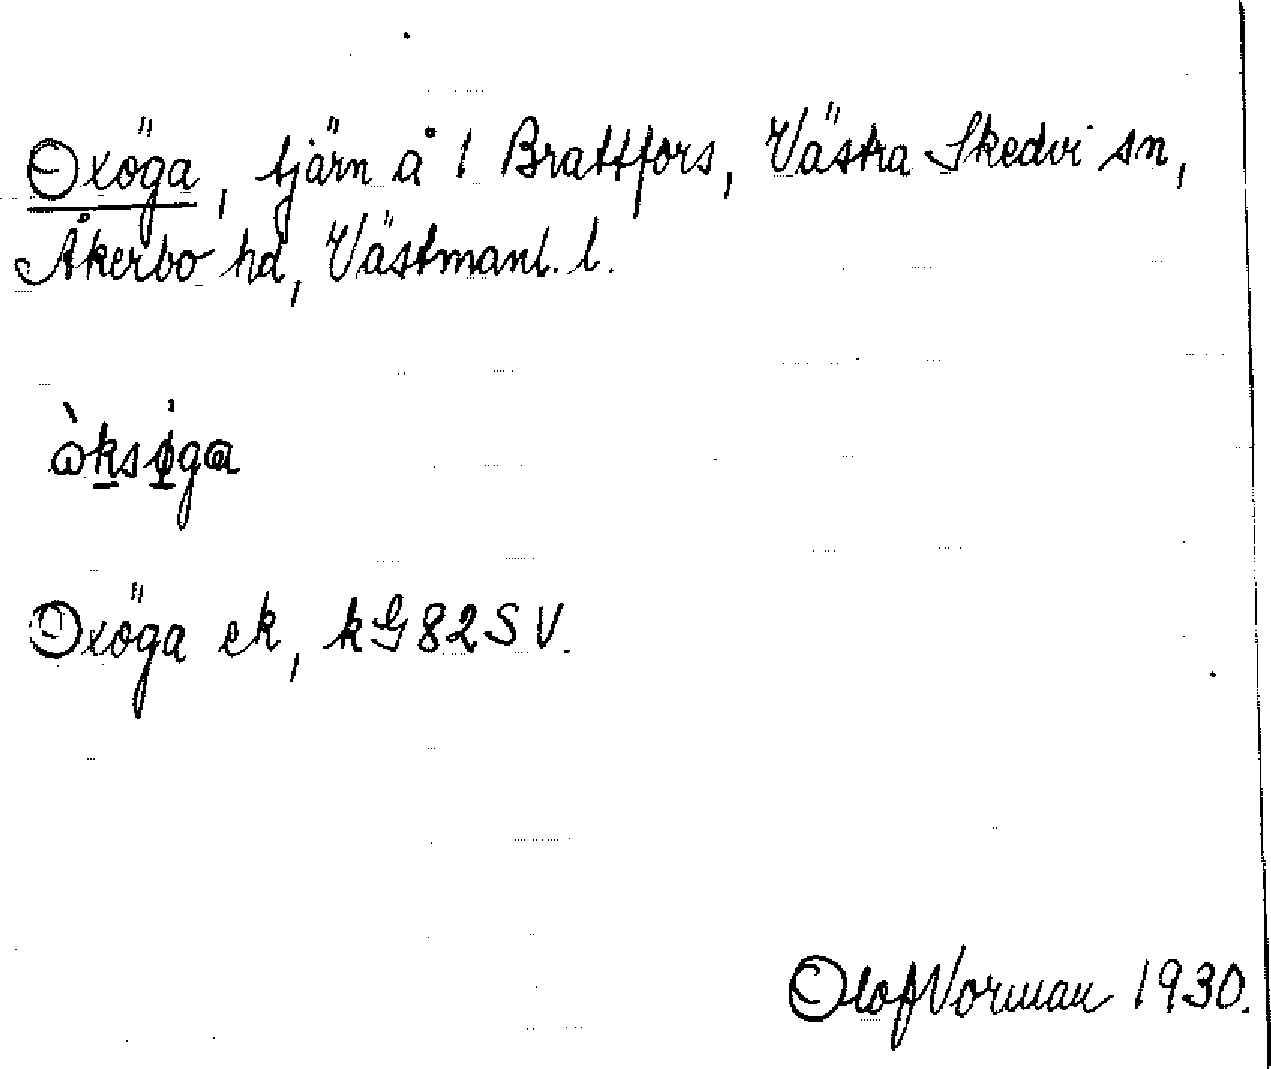 Oxöga, tjärn å 1 Brattfors, Västra Skedvi sn,
Åkerbo hd, Västmanl. l.
ὼksøga
Oxöga ek, kG82SV.
Olof Vorman 1930.